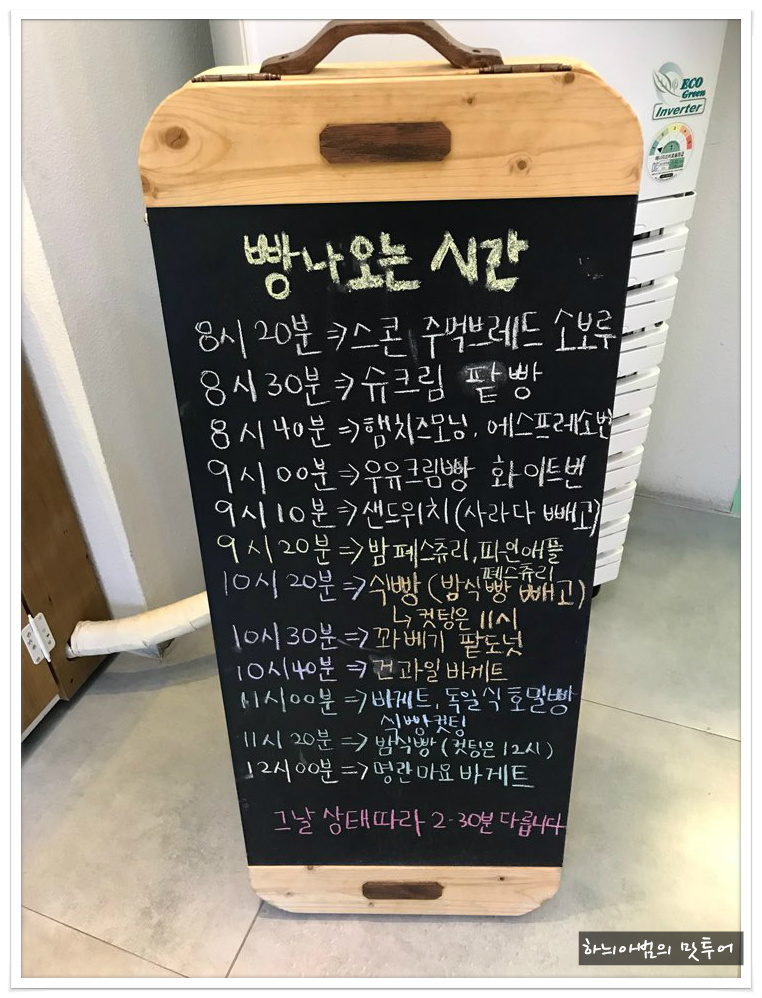 ECO
Green
Inverter
빵나오는 시간
8시 20분 ⇒ 스콘 주먹브레드 소보루
8시 30분 ⇒ 슈크림 팥빵
8시 40분 ⇒ 햄치즈모닝, 에스프레소번
9시 00분 ⇒ 우유크림빵 화이트번
9시 10분 ⇒ 샌드위치 (사라다 빼고)
9시 20분 ⇒ 밤페스츄리, 파인애플
페스츄리
10시 20분 ⇒ 식빵 (밤식빵 빼고)
↳ 컷팅은 11시
10시 30분 ⇒ 꽈베기 팥도넛
10시 40분 ⇒ 건과일바게트
11시 00분 ⇒ 바게트, 독일식호밀빵
식빵컷팅
11시 20분 ⇒ 밤식빵 (컷팅은 12시)
12시 00분 ⇒ 명란마요바게트
그날 상태따라 2-30분 다릅니다
하늬아범의 맛투어